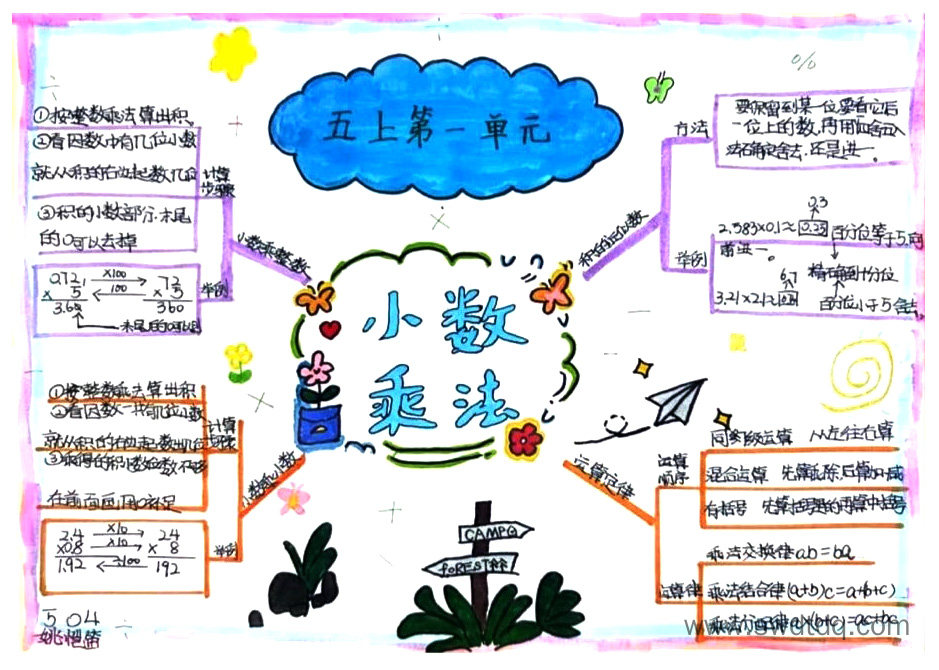 五上第一单元
小数
乘法
小数乘整数
计算
步骤
①按整数乘法算出积
②看因数中有几位小数
就从积的右边起数几位
③积的小数部分末尾
的0可以去掉
举例
0.72 ×100 72
× 5 100 × 5
3.60 360
末尾的0可以
小数乘小数
计算
步骤
①按整数乘法算出积
②看因数一共几位小数
就从积的右边起数几位
③乘得的积小数位数不够
在前面用0补足
举例
2.4 ×10 24
×0.8 ×10 × 8
1.92 ÷100 192
504
积的近似数
方法
要保留到某一位要看它后
一位上的数,再用四舍五入
法确定舍去,还是进一。
举例
0.3
2.583×0.1≈0.25 百分位等于5,向
前进一。
精确到十分位
6.7
3.21×2.1≈
百分位小于5舍去。
运算定律
运算
顺序
同等级运算 从左往右算
混合运算 先算乘除,后算加减
有括号 先算括号里的再算中括号
运算律
乘法交换律ab=ba
乘法结合律(a+b)c=a+b+c)
乘法分配律a×(b+c)=ac+bc
CAMPO
FOREST